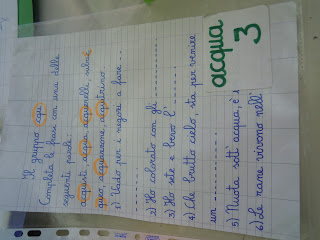 Il gruppo cqu
Completa le frasi con una delle
seguenti parole:
acquisti, acqua, acquerelli, subac
queo, acquazzone, acquitrino.
1) Vado per i negozi a fare...
2) Ho colorato con gli ...........
3) Ho sete e bevo l'...........
4) Che brutto cielo, sta per venire
un ...........
5) Nuota sott'acqua, è
6) Le rane vivono nell'
acqua
3